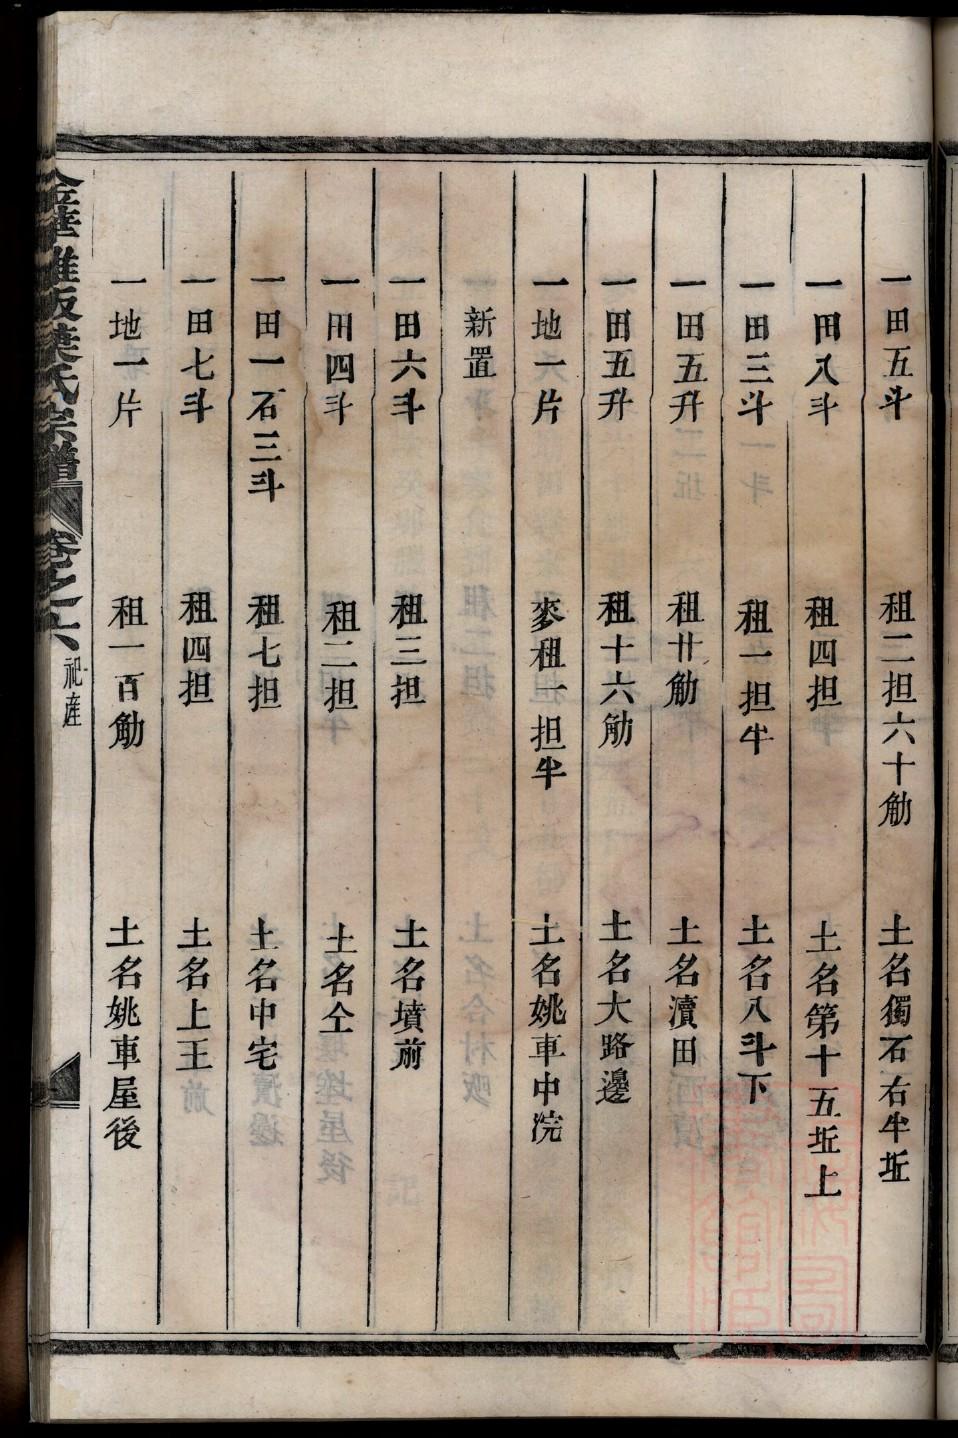 一田五斗　租二担六十觔　土名獨石右半坵
一田八斗　租四担　土名第十五坵上
一田三斗　租一担半　土名八斗下
一田五升　租廿觔　土名瀆田
一田五升　租十六觔　土名大路邊
一地一片　麥租一担半　土名姚車中浣
一新置
一田六斗　租三担　土名墳前
一田四斗　租二担　土名仝
一田一石三斗　租七担　土名中宅
一田七斗　租四担　土名上王
一地一片　租一百觔　土名姚車屋後
金華雅畈葉氏宗譜　卷之六　祀產